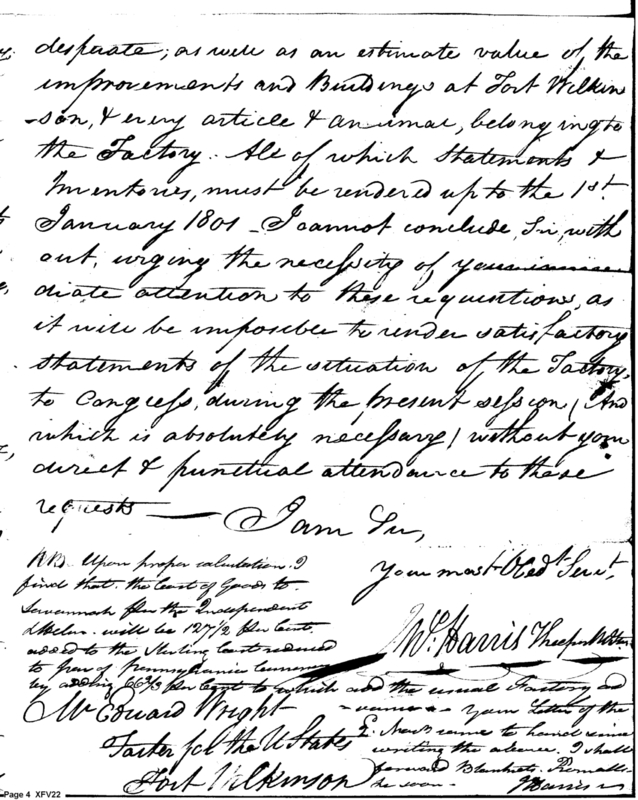 desperate; as well as an estimate value of the
improvements and Buildings at Fort Wilkin
-son, & every article & animal, belonging to
the Factory. All of which Statements &
Inventories, must be rendered up to the 1st.
January 1801 - I cannot conclude, Sir, with
out, urging the necessity of your imme
diate attention to these requisitions, as
it will be imposible to render satisfactory
statements of the situation of the Factory,
to Congress, during the present session / And
which is absolutely necessary / without your
direct & punctual attendance to these
requests —
I am Sir,
Your most Obedt. Servt,
Wm. Harris
NB. Upon proper calculation I
find that the Cost of Goods to
Savannah per the Independent
will be 127½ per Cent.
added to the Sterling Cost reduced
to par of Pennsylvania Currency
by adding 66⅔ per Cent to which add the usual Factory ad
-vance - Your Letter of the
came to hand since
writing the above. I shall
forward Blankets
Mr Edward Wright
Factor for the U States
Fort Wilkinson
Page 4 XFV22